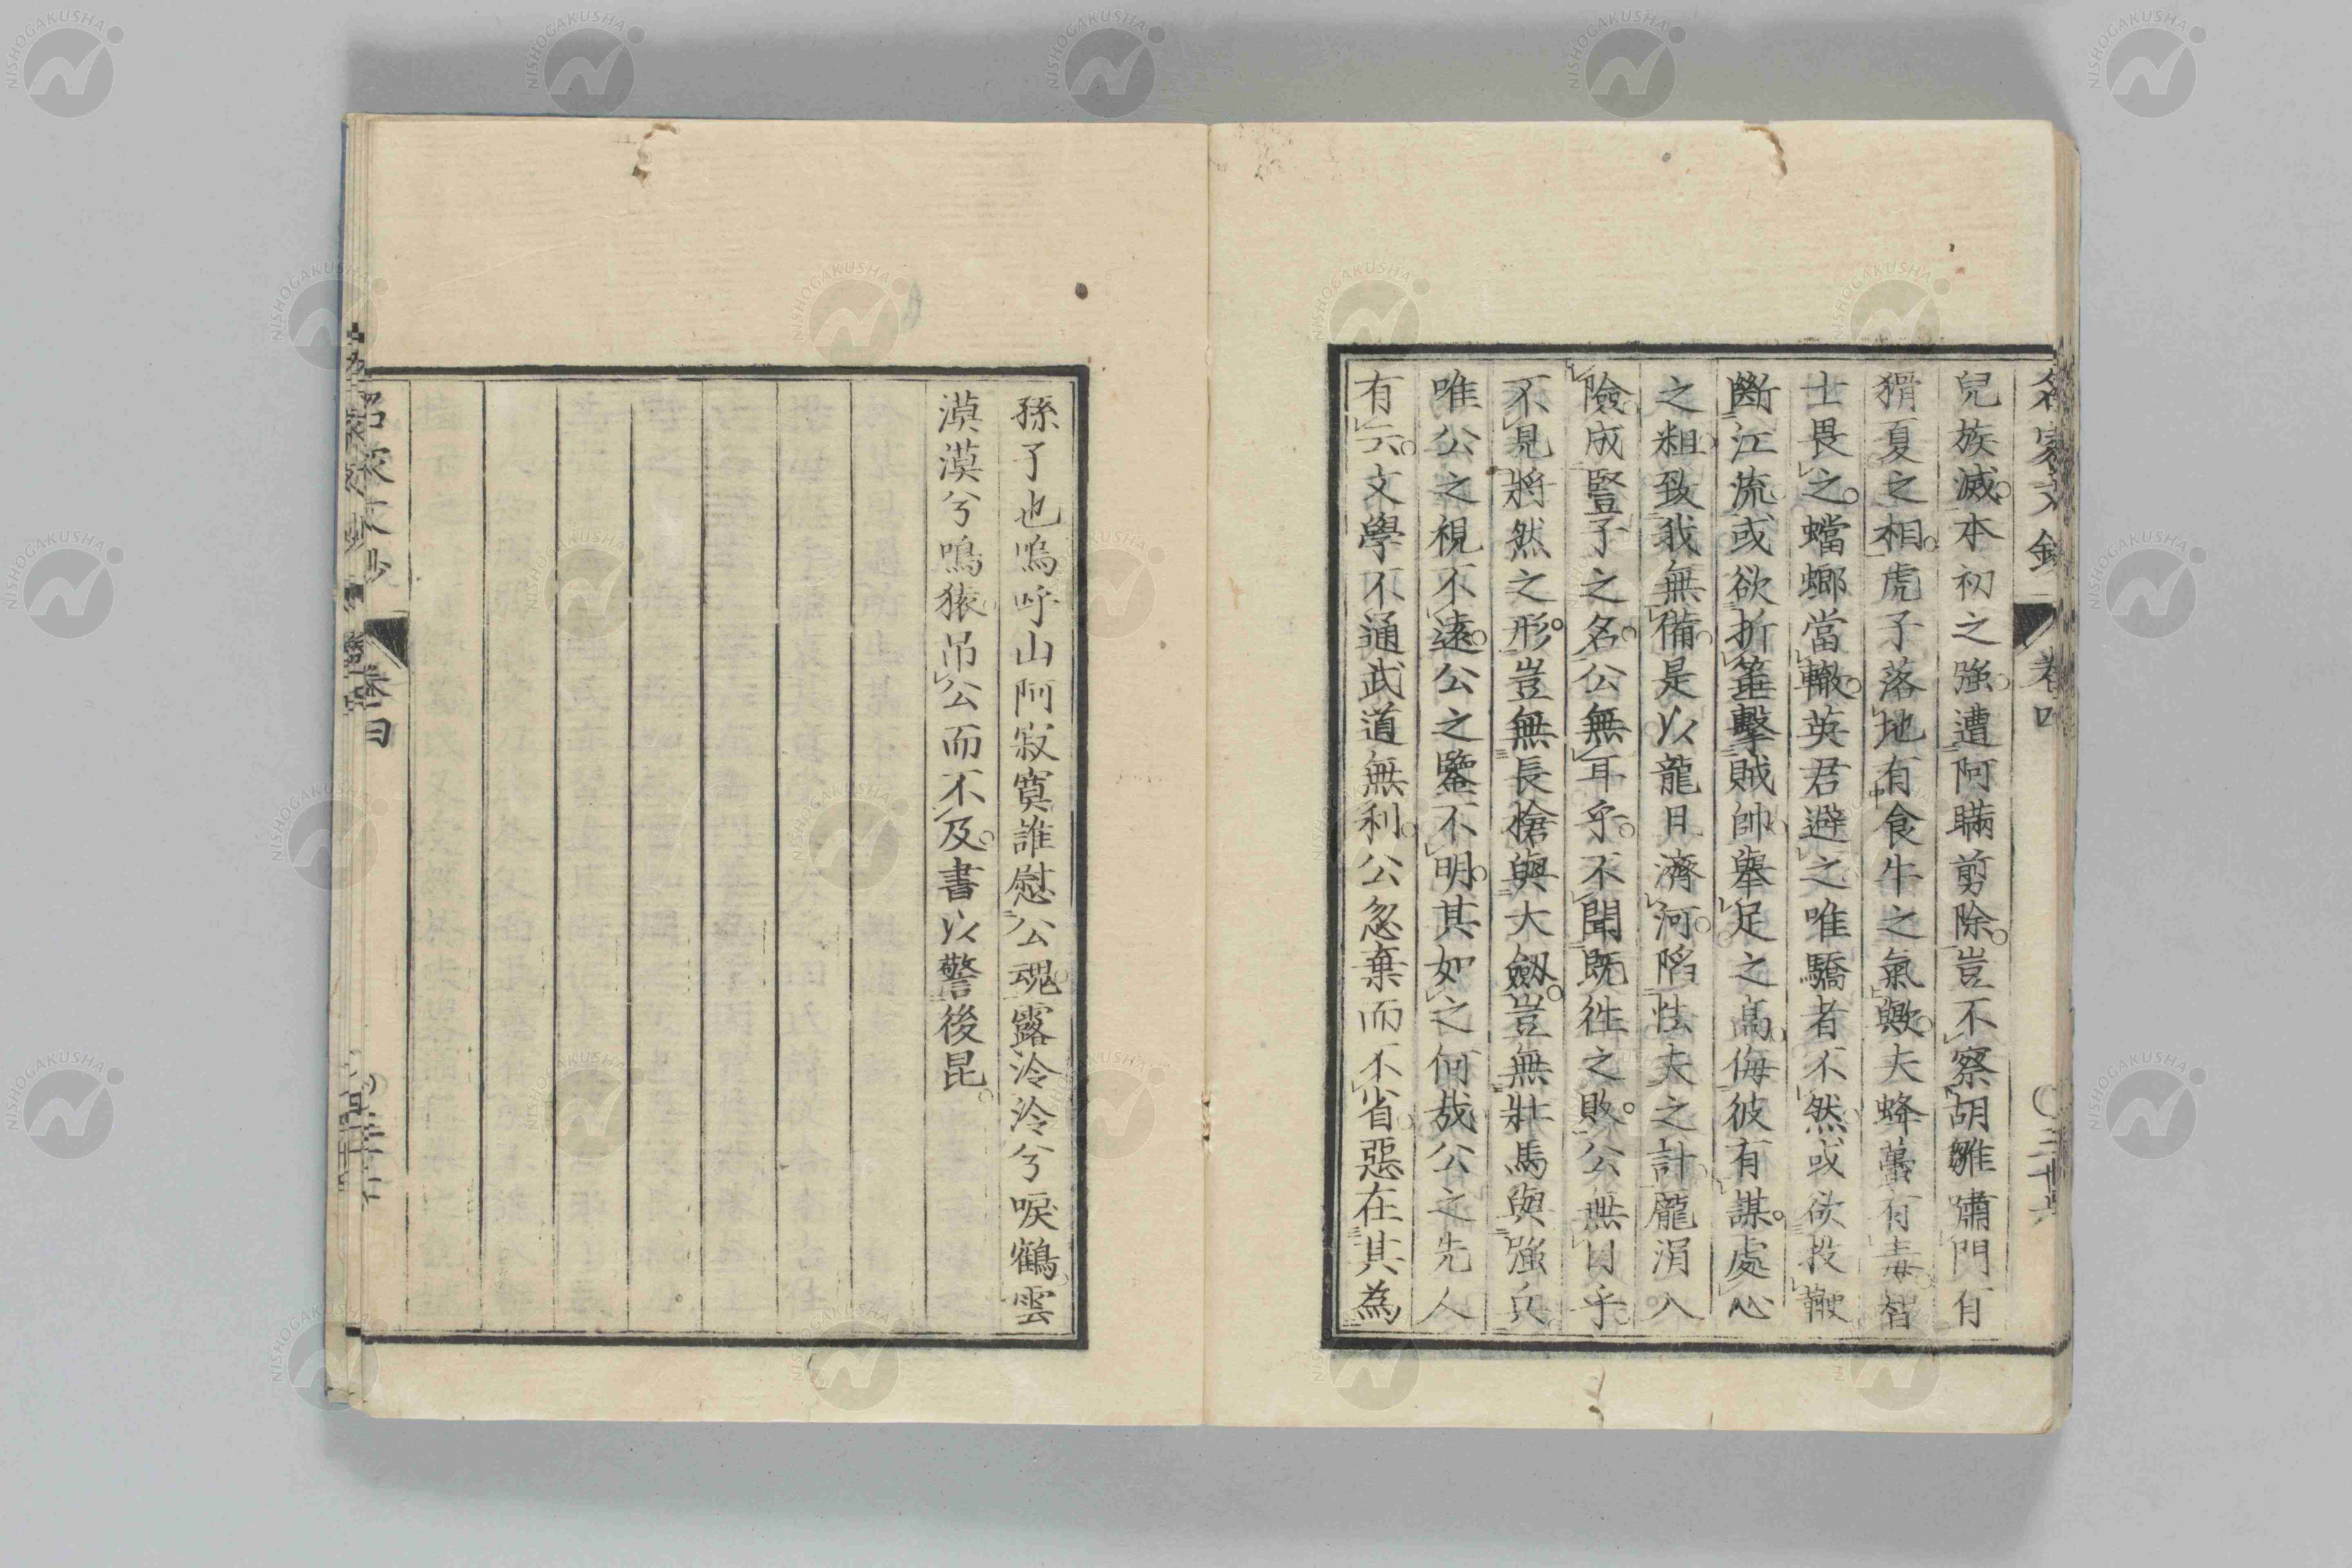 兒族滅本初之強遭阿瞞剪除豈不察胡雛嘯門有
猾夏之相虎子落地有食牛之氣歟夫蜂蠆有毒智
士畏之蟷螂當轍英君避之唯驕者不然或欲投鞭
斷江流或欲折箠擊賊帥擧足之高侮彼有謀處心
之粗致我無備是以龍且濟河陷怯夫之計龐涓入
險成豎子之名公無耳乎不聞既往之敗公無目乎
不見將然之形豈無長槍與大劔豈無壯馬與強兵
唯公之視不遠公之鑒不明其如之何哉公之先人
有云文學不通武道無利公忽棄而不省惡在其為
孫子也嗚呼山阿寂寞誰慰公魂露泠泠兮唳鶴雲
漠漠兮鳴猿吊公而不及書以警後昆
NISHOGAKUSHA